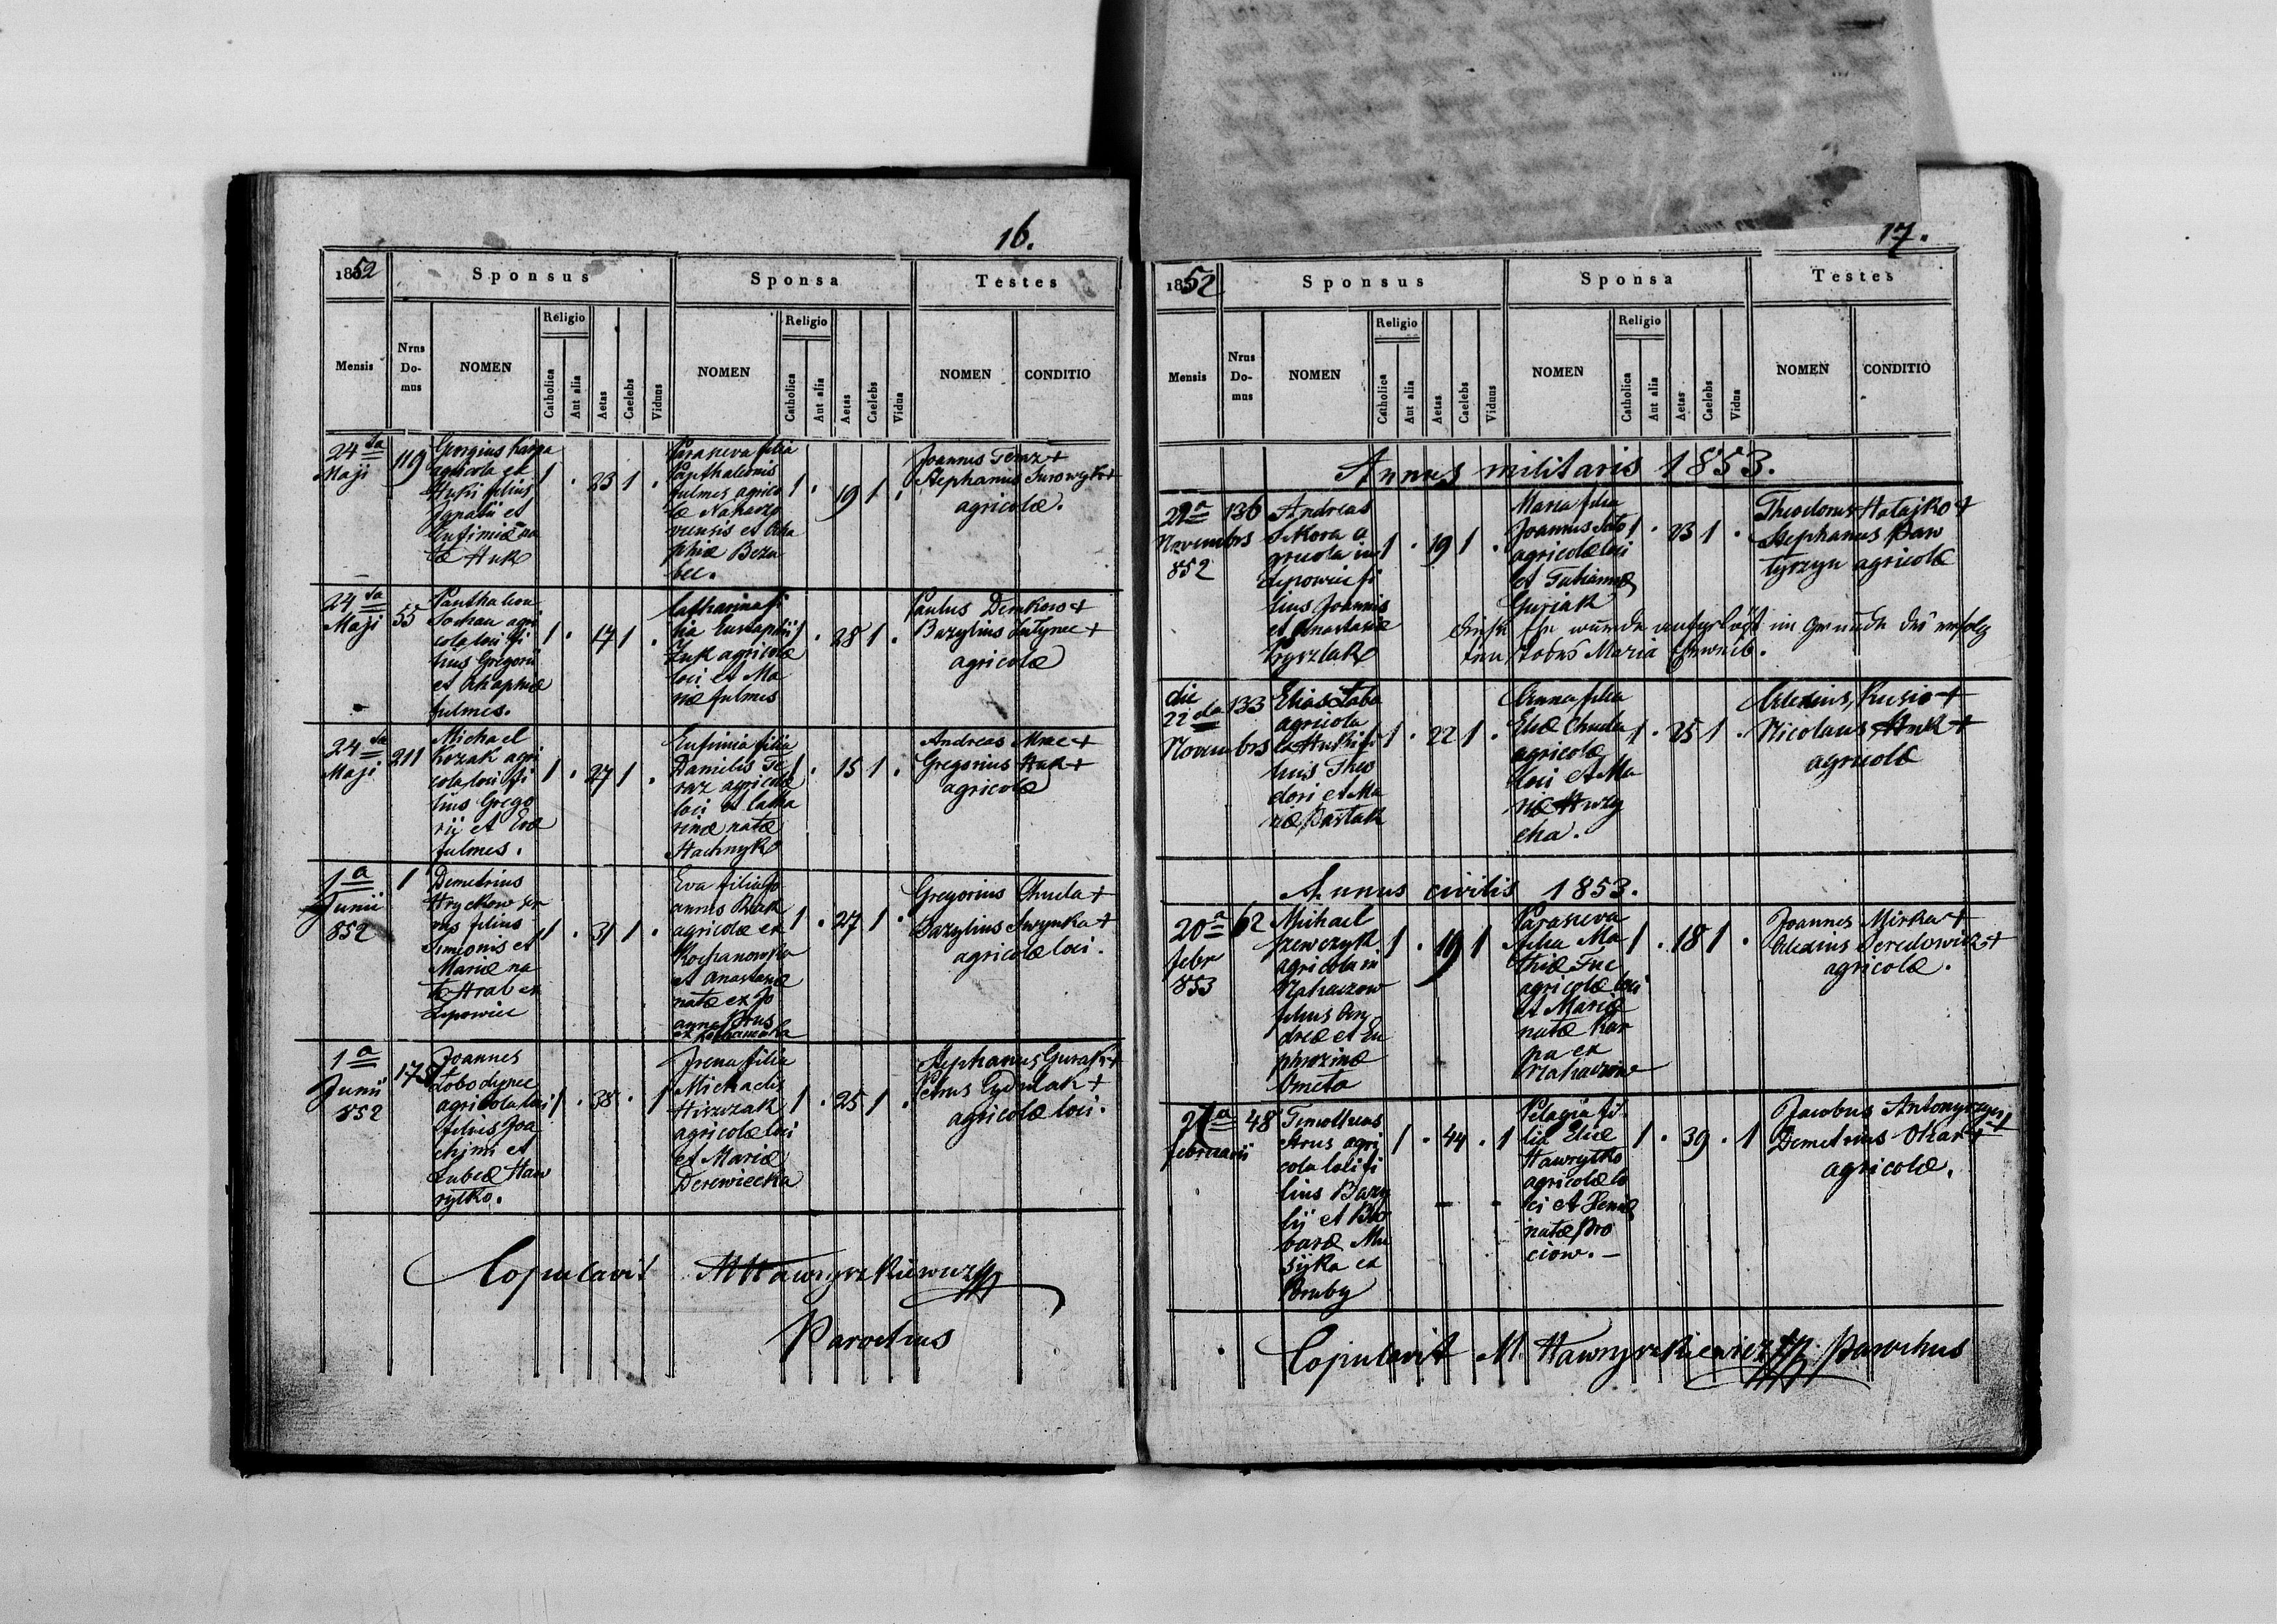 16.
1852
Sponsus
Sponsa
Testes
Mensis
Nrus Do-mus
NOMEN
Religio
Catholica
Aut alia
Aetas
Caelebs
Viduus
NOMEN
Religio
Catholica
Aut alia
Aetas
Caelebs
Vidua
NOMEN
CONDITIO
24ta
Maji
119
Georgius Karpa
agricola ex
Huki filius
Ignatii et
Eufimiæ na
tæ Huk
1 . 23 1 .
Paraseva filia
Panthaleonis
fulmes agrico
læ Nahaczo
viensis et Aha
phiæ
1 . 19 1 .
Joannes Teraz +
Stephanus Surowyk +
agricolæ.
24ta
Maji
55
Panthaleon
Sochan agri
cola loci fi
lius Gregorii
et Ahaphiæ
fulmes.
1 . 17 1 .
Catharina fi
lia Eustaphii
Zuk agricolæ
loci et Ma
riæ fulmes
1 . 28 1 .
Paulus Demkow +
Bazylius +
agricolæ
24ta
Maji
211
Michael
Kozak agri
cola loci fi
lius Grego
rii et Evæ
fulmes.
1 . 27 1 .
Eufimia filia
Danielis Te
raz agricolæ
loci et Catha
rinæ natæ
Stachnyk
1 . 15 1 .
Andreas Mrac +
Gregorius Huk +
agricolæ
1a
Junii
852
1
Demetrius
Hryckow
filius
Simeonis et
Mariæ na
tæ Hrab ex
Lipowiec
1 . 31 1 .
Eva filia Jo
annis Bzak
agricolæ ex
Kochanowka
et Anastasiæ
natæ ex Jo
anne Prus
ex Kochanowka
1 . 27 1 .
Gregorius Chuda +
Bazylius +
agricolæ loci.
1a
Junii
852
178
Joannes
Łobodynec
agricola loci
filius Joa
chimi et
Lubæ Haw
rytko.
1 . 38 . 1
Irena filia
Michaelis
Hirczak
agricolæ loci
et Mariæ
Derewiecka
1 . 25 1 .
Stephanus Gurak +
Petrus +
agricolæ loci.
Copulavit M Hawryszkiewicz
Parochus
17.
1852
Sponsus
Sponsa
Testes
Mensis
Nrus Do-mus
NOMEN
Religio
Catholica
Aut alia
Aetas
Caelebs
Viduus
NOMEN
Religio
Catholica
Aut alia
Aetas
Caelebs
Vidua
NOMEN
CONDITIO
Annus militaris 1853.
Novembris
852
136
Andreas
Sikora a
gricola in
Lipowiec fi
lius Joannis
et Anastasiæ
1 . 19 1 .
Maria filia
Joannis
agricolæ loci
et Tatiannæ
Guriak
1 . 23 1 .
Theodorus Hatajko +
Stephanus Baw
tyrzyn agricolæ
Diese Ehe wurde aufgelöst im Grunde des erfolg
ten Todes Maria
die
22da
Novembris
133
Elias Łaba
agricola
ex Huki fi
lius Theo
dori et Ma
riæ Bartak
1 . 22 1 .
Anna filia
Eliæ Chuda
agricolæ
loci et Ma
riæ Hrzy
cha.
1 . 25 1 .
Alexius Kusio +
Nicolaus Huk +
agricolæ
Annus civilis 1853.
20a
febr
853
62
Michael
Szewczyk
agricola in
Nahaczow
filius An
dreæ et Eu
phrozinæ
Ometa
1 . 19 1
Paraseva
filia Ma
thiæ Fuc
agricolæ loci
et Mariæ
natæ Kar
pa ex
Nahaczow
1 . 18 1 .
Joannes Mirka +
Alexius Seredowicz +
agricolæ.
februarii
48
Timotheus
Strus agri
cola loci fi
lius Bazy
lii et Bar
baræ Mu
syka ex
Bruby
1 . 44 . 1
Pelagia fi
lia Eliæ
Hawrytko
agricolæ lo
ci et Xeniæ
natæ Pro
ciow. —
1 . 39 . 1
Jacobus Antonyszyn +
Demetrius +
agricolæ.
Copulavit M. Hawryszkiewicz Parochus